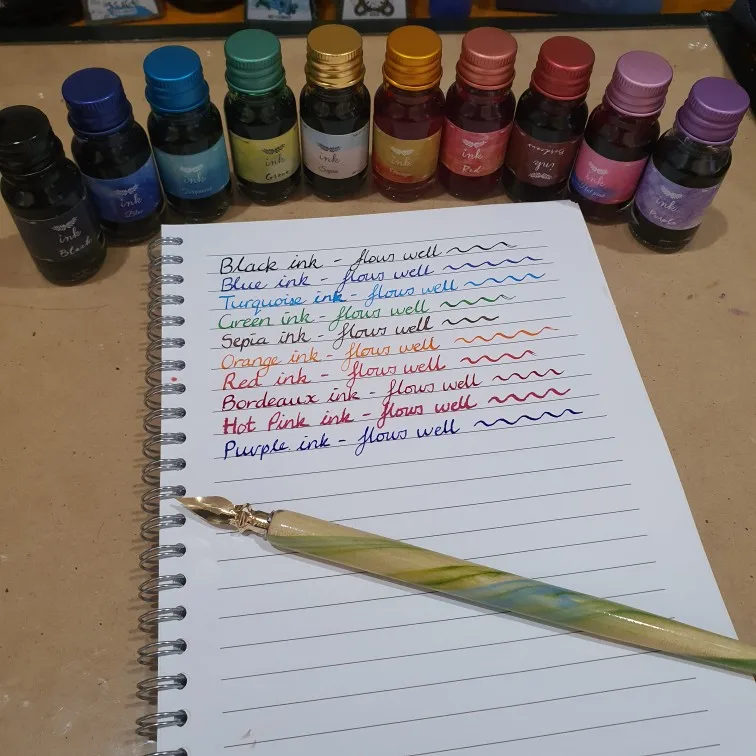 ink
Black
ink
Blue
ink
Turquoise
ink
Green
ink
Sepia
ink
ink
Red
ink
Bordeaux
ink
ink
Purple
Black ink - flows well
Blue ink - flows well
Turquoise ink - flows well
Green ink - flows well
Sepia ink - flows well
Orange ink - flows well
Red ink - flows well
Bordeaux ink - flows well
Hot Pink ink - flows well
Purple ink - flows well